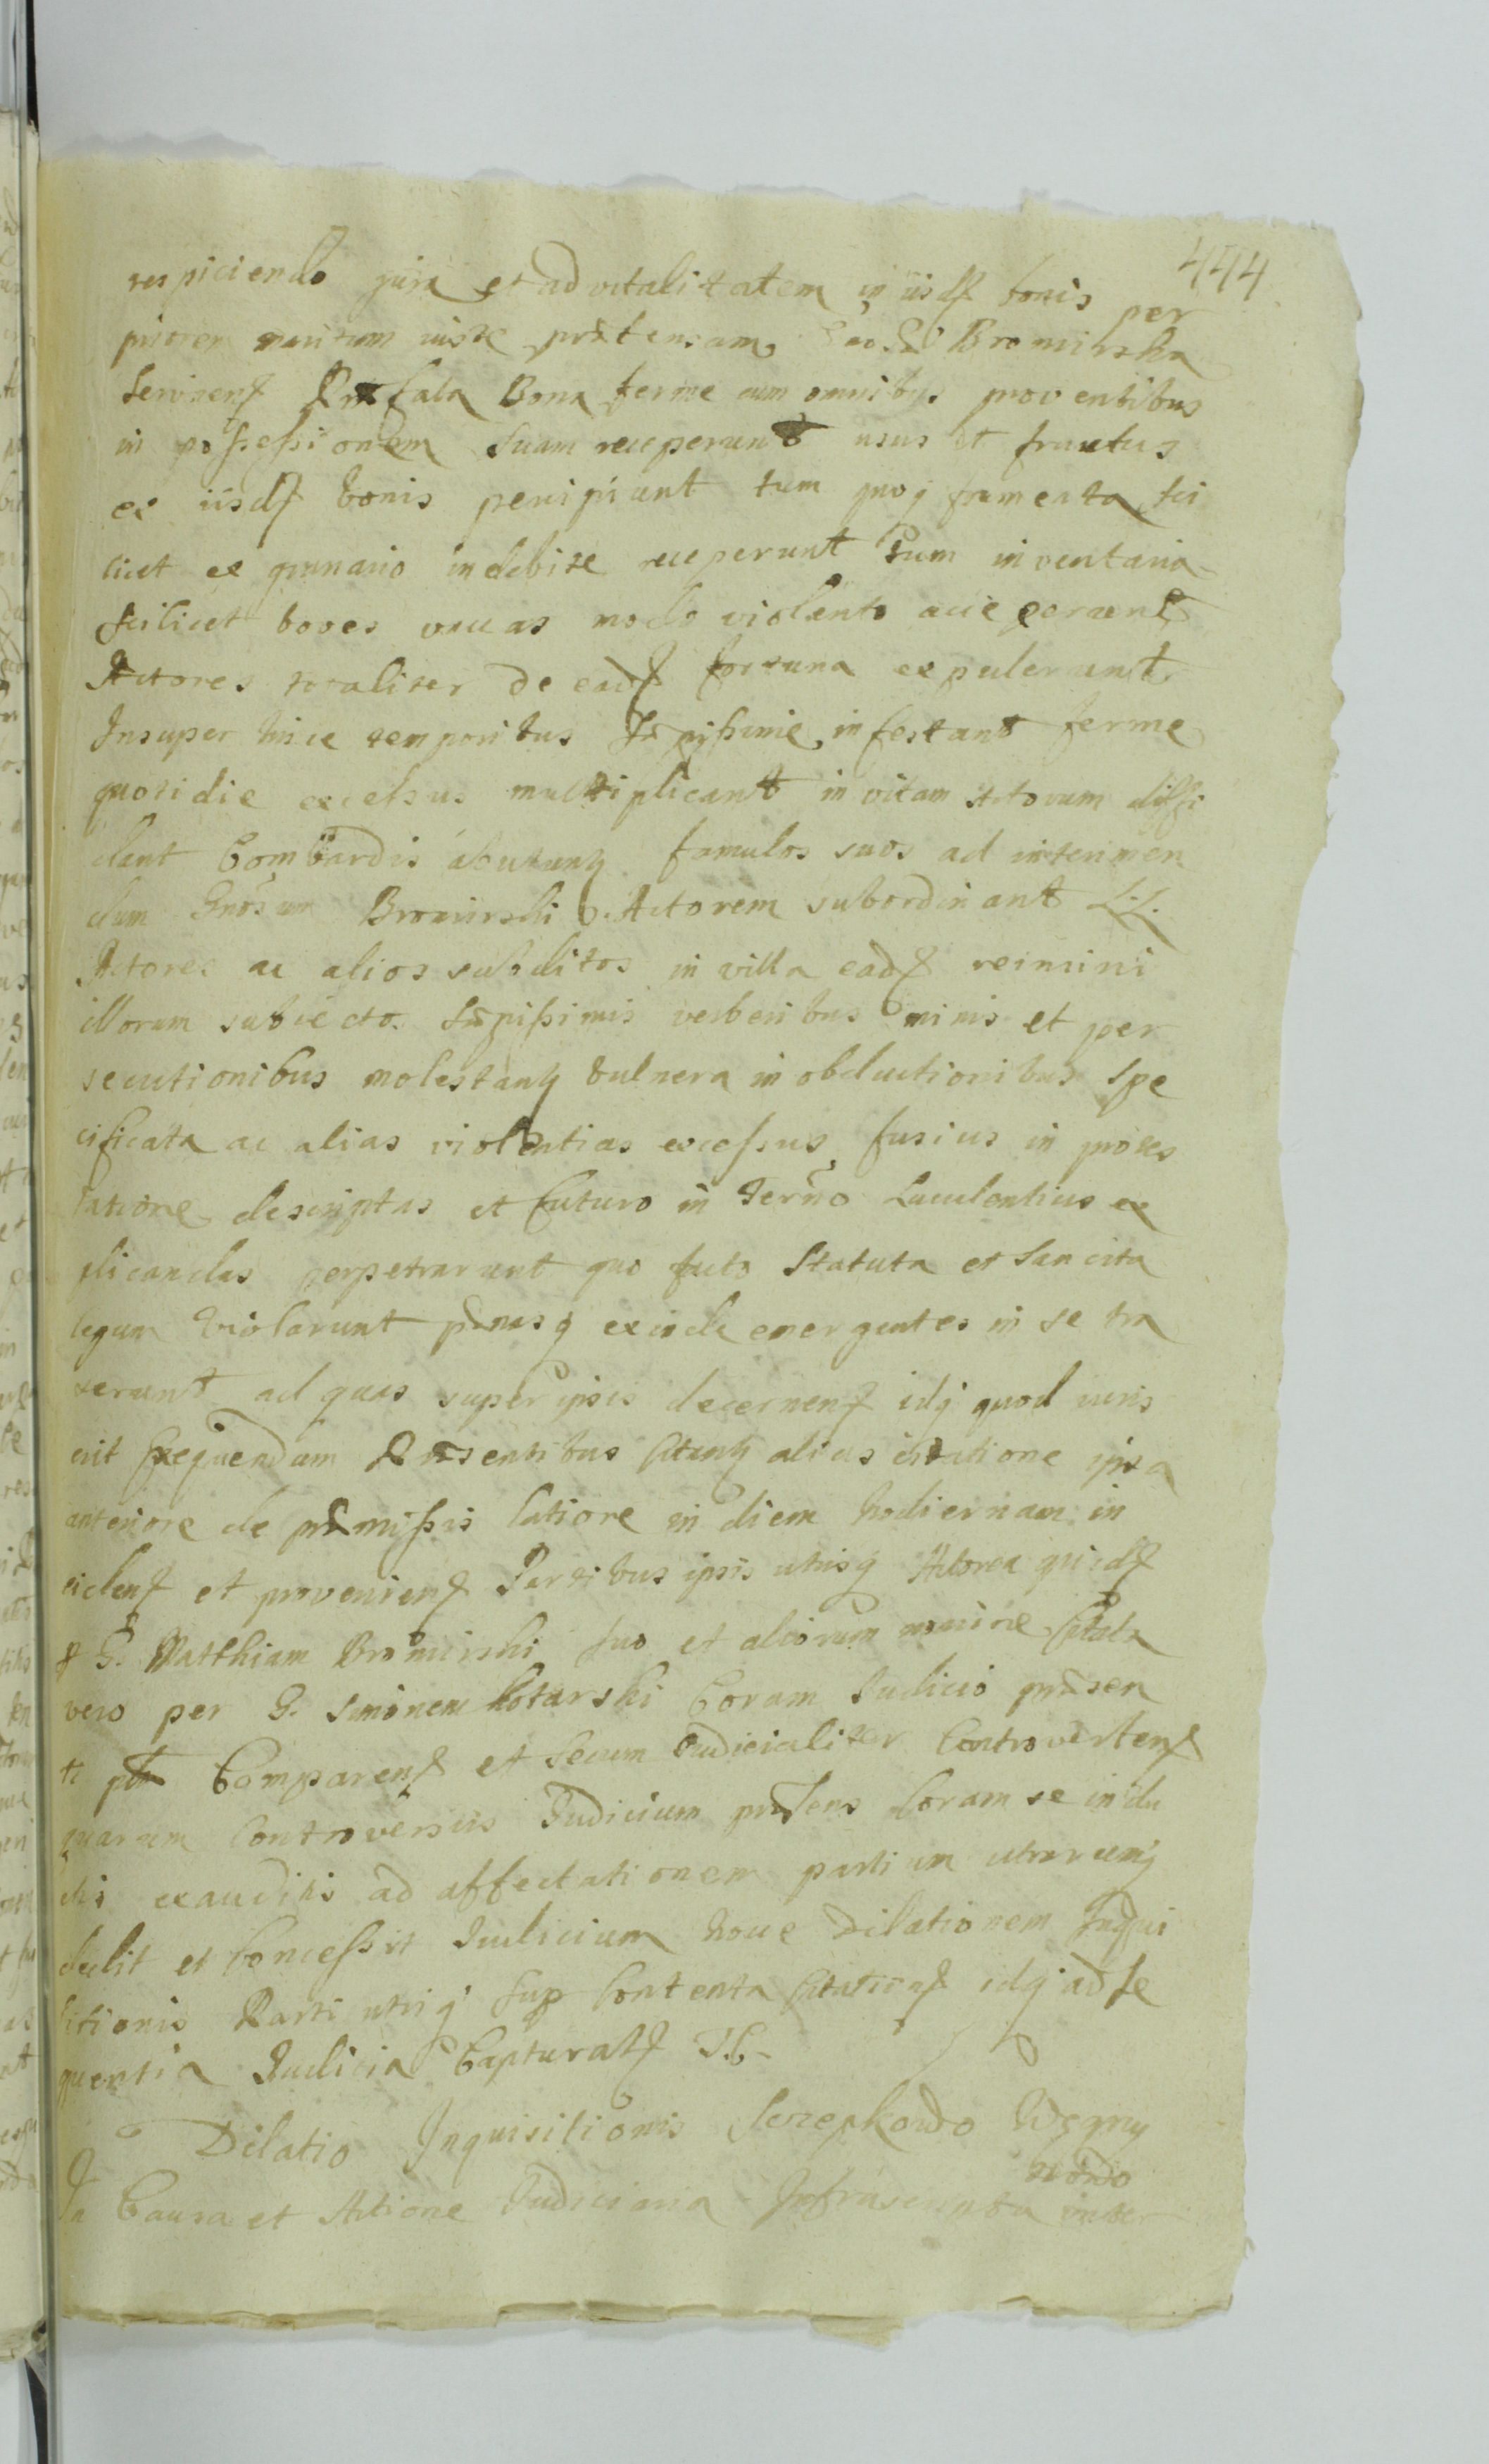 444
respiciendo jura et advitalitatem in iisdʒ bonis per
priorem maritum iuste prætensam Bromirska
servienʒ Præfata Bona ferme cum omnibus proventibus
in poſseſsionem suam receperunt usus et fructus
ex iisdʒ bonis percipiunt tum quoqʒ frumenta sci
licet ex granario indebite receperunt tum inventaria
scilicet boves vaccas modo violento acceperunt
Actores totaliter de eadʒ fortuna expulerunt
Insuper hisce temporibus Sæpiſsime infestant ferme
quotidie exceſsus multiplicant in vitam Actorum diffi
dant Bombardis abutunʒ famulos suos ad interimen
dum Gnosum Bromirski Actorem subordinant LL.
Actores ac alios subditos in villa eadʒ
illorum subiectos Sæpiſsimis verberibus minis et per
secutionibus molestanʒ vulnera in obductionibus Spe
cificata ac alias violentias exceſsus fusius in protes
tatione descriptas et futuro in Termo Luculentius ex
plicandas perpetrarunt quo facto Statuta et Sancita
legum Violarunt pænasqʒ exinde emergentes in se tra
xerunt ad quas super ipsis decernenʒ idqʒ quod iuris
erit Exequendum Præsentibus Citanʒ alias citatione ipsa
anteriore de præmiſsis latiore in diem hodiernam in
cidenʒ et provenienʒ Partibus ipsis utrisqʒ Actorea quidʒ
per G. Matthiam Bromirski suo et aliorum nomine Citata
vero per G. Simonem Kotarski Coram Judicio præsen
ti Comparenʒ et Secum Judicialiter Controvertenʒ
quarum Controversiis Judicium præsens Coram se indu
ctis exauditis ad affectationem partium utrarumqʒ
dedit et Conceſsit Judicium hocce Dilationem Inqui
sitionis Parti utriqʒ Sup Contenta Citationʒ idqʒ ad se
quentia Judicia Capturalʒ
Dilatio Inquisitionis Szczepkowo Węgry
nowo
In Causa et Actione Judiciaria Infrascripta inter